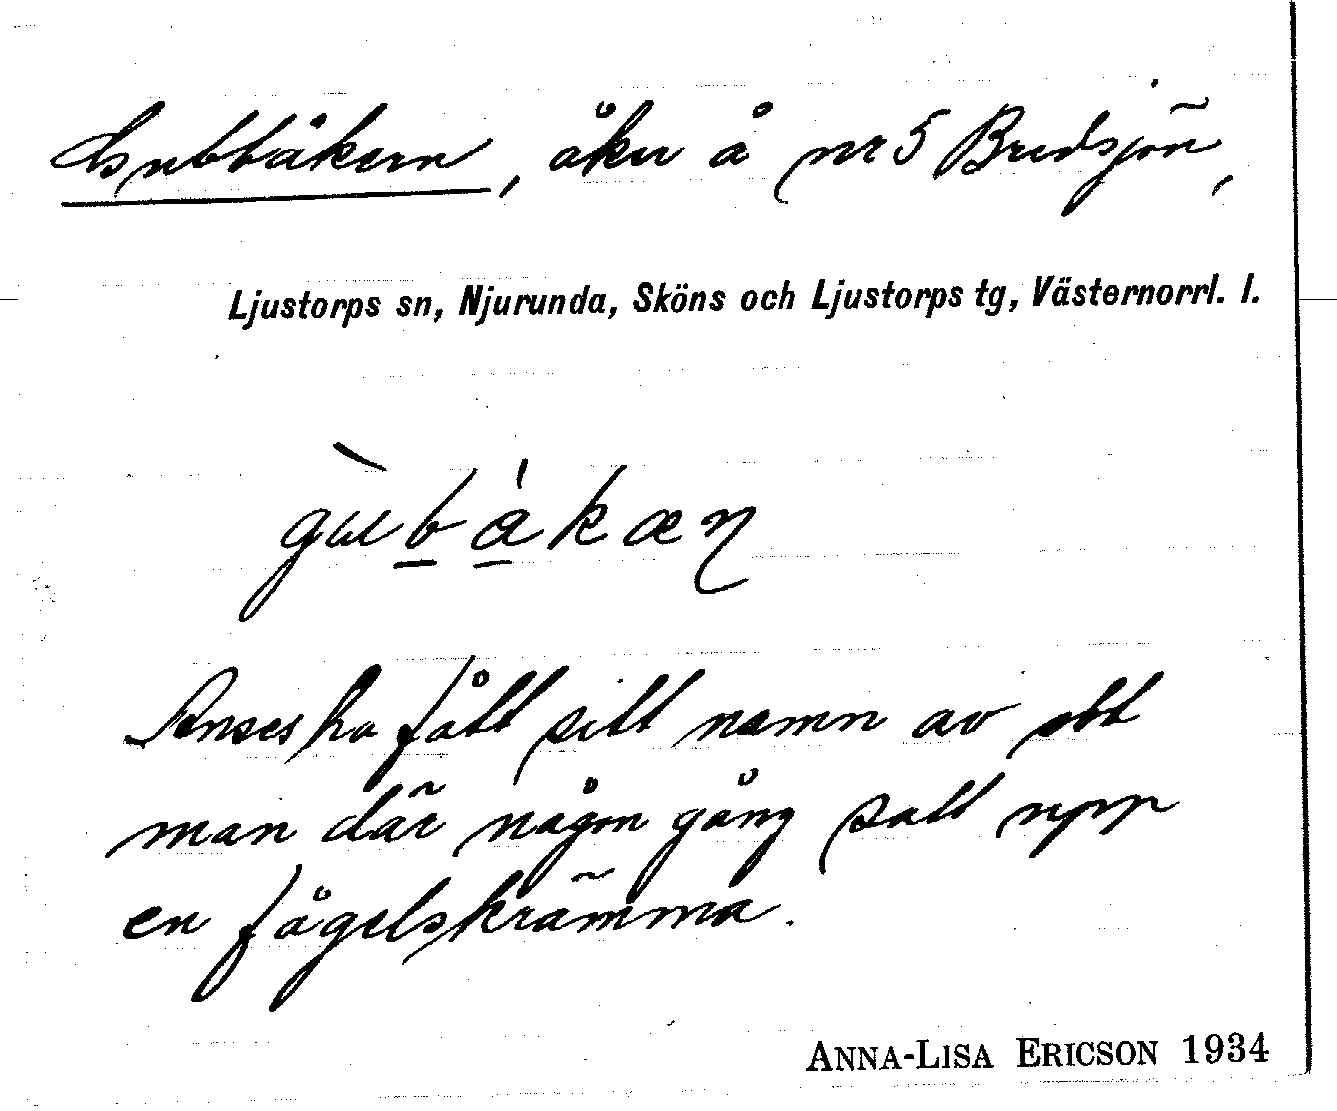 Gubbåkern, åker å nr 5 Bredsjön,
Ljustorps sn, Njurunda, Sköns och Ljustorps tg, Västernorrl. l.
Anses ha fått sitt namn av att
man där någon gång satt upp
en fågelskrämma.
ANNA-LISA ERICSON 1934